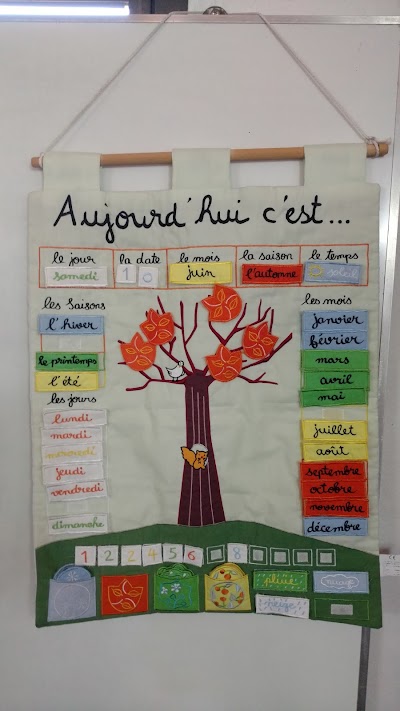 Aujourd'hui c'est...
le jour la date le mois la saison le temps
samedi 1 0 juin l'automne soleil
les saisons
l'hiver
le printemps
l'été
les jours
lundi
mardi
mercredi
jeudi
vendredi
dimanche
les mois
janvier
février
mars
avril
mai
juillet
août
septembre
octobre
novembre
décembre
1 2 2 4 5 6 8
pluie nuage
neige